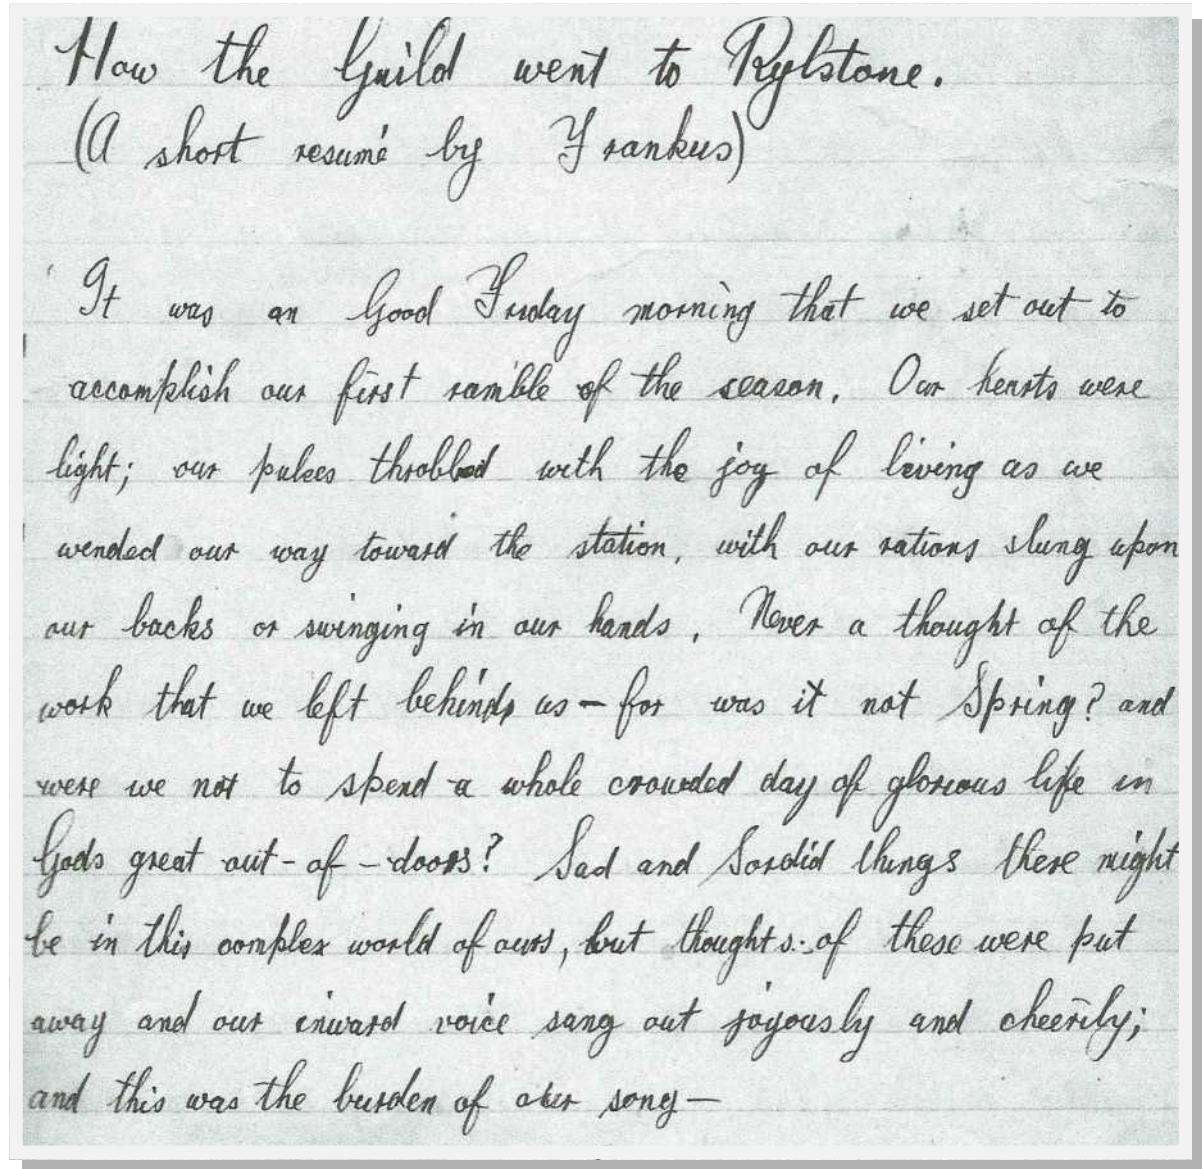 How the Guild went to Rylstone.
(A short resumé by Frankus)
It was on Good Friday morning that we set out to
accomplish our first ramble of the season. Our hearts were
light; our pulses throbbed with the joy of living as we
wended our way toward the station, with our rations slung upon
our backs or swinging in our hands. Never a thought of the
work that we left behind us – for was it not Spring? and
were we not to spend a whole crowded day of glorious life in
Gods great out-of-doors? Sad and Sordid things there might
be in this complex world of ours, but thoughts of these were put
away and our inward voice sang out joyously and cheerily;
and this was the burden of our song –